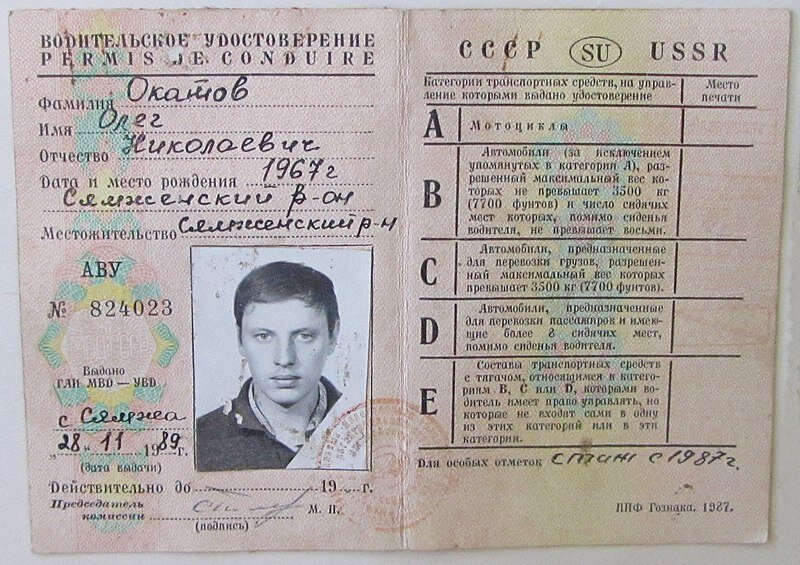 ВОДИТЕЛЬСКОЕ УДОСТОВЕРЕНИЕ
PERMIS DE CONDUIRE
Фамилия Окатов
Имя Олег
Отчество Николаевич
Дата и место рождения 1967г
Сямженский р-он
Местожительство Сямженский р-н
АВУ
№ 824023
Выдано
ГАИ МВД — УВД
с Сямжа
„28" 11 1989г.
(дата выдачи)
Действительно до 19 г.
Председатель
комиссии
(подпись)
М. П.
СССР SU USSR
Категории транспортных средств, на управ-
ление которыми выдано удостоверение
Место
печати
A Мотоциклы
B Автомобили (за исключением
упомянутых в категории А), раз-
решенный максимальный вес ко-
торых не превышает 3500 кг
(7700 фунтов) и число сидячих
мест которых, помимо сиденья
водителя, не превышает восьми.
C Автомобили, предназначенные
для перевозки грузов, разрешен-
ный максимальный вес которых
превышает 3500 кг (7700 фунтов).
D Автомобили, предназначенные
для перевозки пассажиров и имею-
щие более 8 сидячих мест,
помимо сиденья водителя.
E Составы транспортных средств
с тягачом, относящимся к катего-
риям B, C или D, которыми во-
дитель имеет право управлять, но
которые не входят сами в одну
из этих категорий или в эти
категории.
Для особых отметок стаж с 1987г.
ППФ Гознака. 1987.